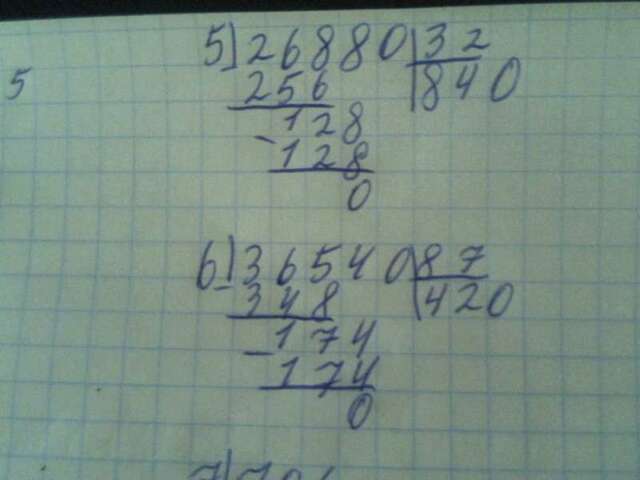 5) 26880 | 32
5
256 | 840
128
- 128
0
6) 36540 | 87
- 348 | 420
174
- 174
0